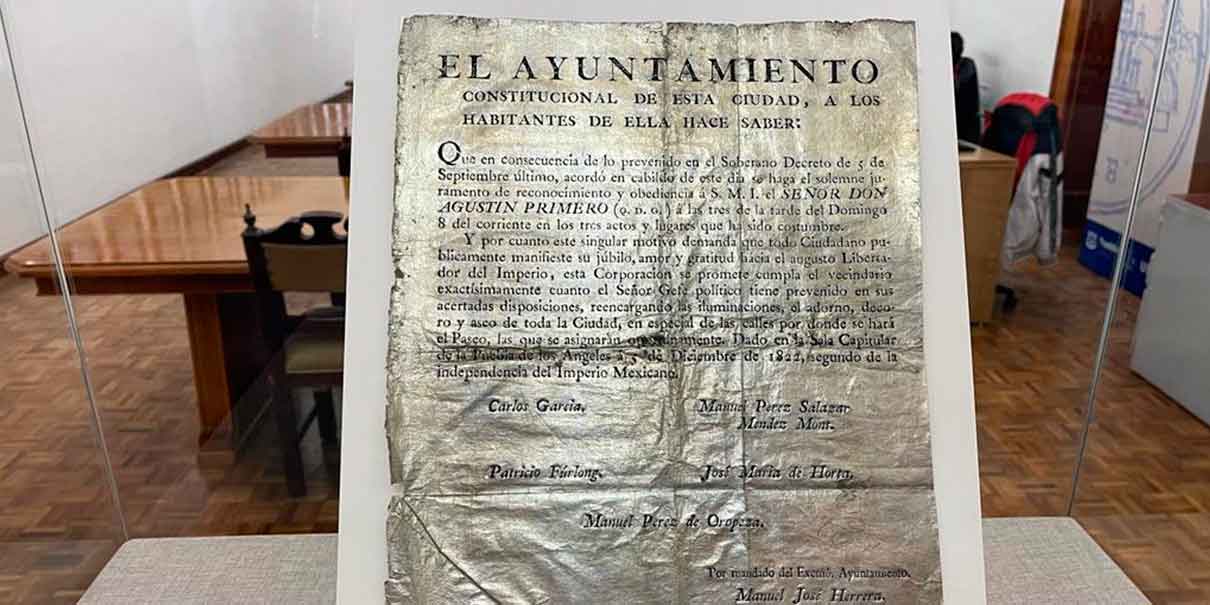 EL AYUNTAMIENTO
CONSTITUCIONAL DE ESTA CIUDAD, A LOS
HABITANTES DE ELLA HACE SABER:
Que en consecuencia de lo prevenido en el Soberano Decreto de 5 de
Septiembre último, acordó en cabildo de este dia se haga el solemne ju-
ramento de reconocimiento y obediencia á S. M. I. el SEÑOR DON
AGUSTIN PRIMERO (Q. D. G.) á las tres de la tarde del Domingo
8 del corriente en los tres actos y lugares que ha sido costumbre.
Y por cuanto este singular motivo demanda que todo Ciudadano pu-
blicamente manifieste su júbilo, amor y gratitud hácia el augusto Liberta-
dor del Imperio, esta Corporacion se promete cumpla el vecindario
exactísimamente cuanto el Señor Gefe político tiene prevenido en sus
acertadas disposiciones, reencargando las iluminaciones, el adorno, deco-
ro y aseo de toda la Ciudad, en especial de las calles por donde se hará
el Paseo, las que se asignarán oportunamente. Dado en la Sala Capitular
de la Puebla de los Angeles á 5 de Diciembre de 1822, segundo de la
independencia del Imperio Mexicano.
Carlos García.
Manuel Perez Salazar
Mendez Mont.
Patricio Fúrlong.
José Maria de Horta.
Manuel Perez de Oropeza.
Por mandado del Excmô. Ayuntamiento.
Manuel José Herrera.